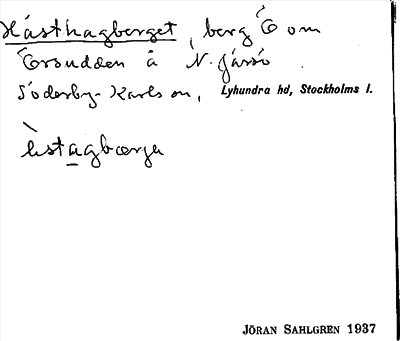 Hästhagberget, berg Ö om
Örsudden å N. Järsö
Söderby-Karls sn, Lyhundra hd, Stockholms l.
JÖRAN SAHLGREN 1937